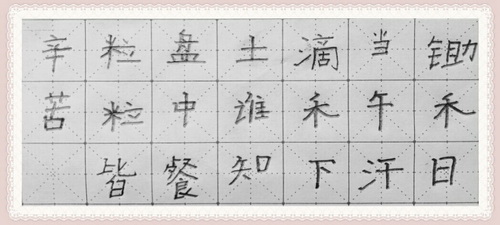 锄禾日
当午汗
滴禾下
土谁知
盘中餐
粒粒皆
辛苦